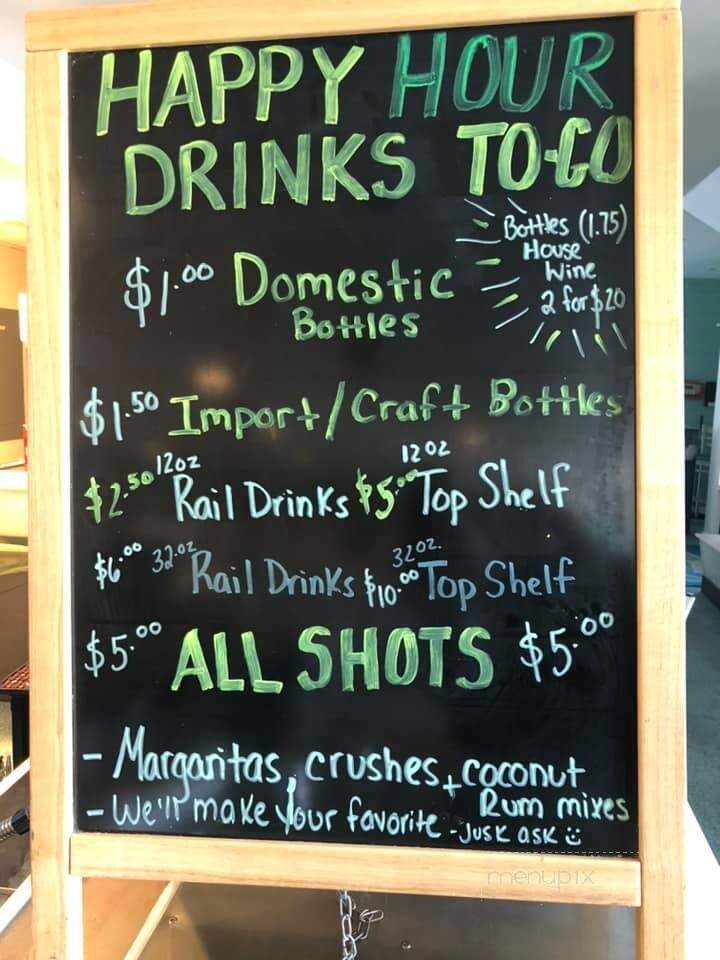 HAPPY HOUR
DRINKS TO-GO
Bottles (1.75)
House
Wine
2 for $20
$1.00 Domestic
Bottles
$1.50 Import/Craft Bottles
$2.50 12oz Rail Drinks $5.00 12oz Top Shelf
$6.00 32oz Rail Drinks $10.00 32oz. Top Shelf
$5.00 ALL SHOTS $5.00
- Margaritas, crushes, + coconut
Rum mixes
- We'll make your favorite - Jusk ask
menupix